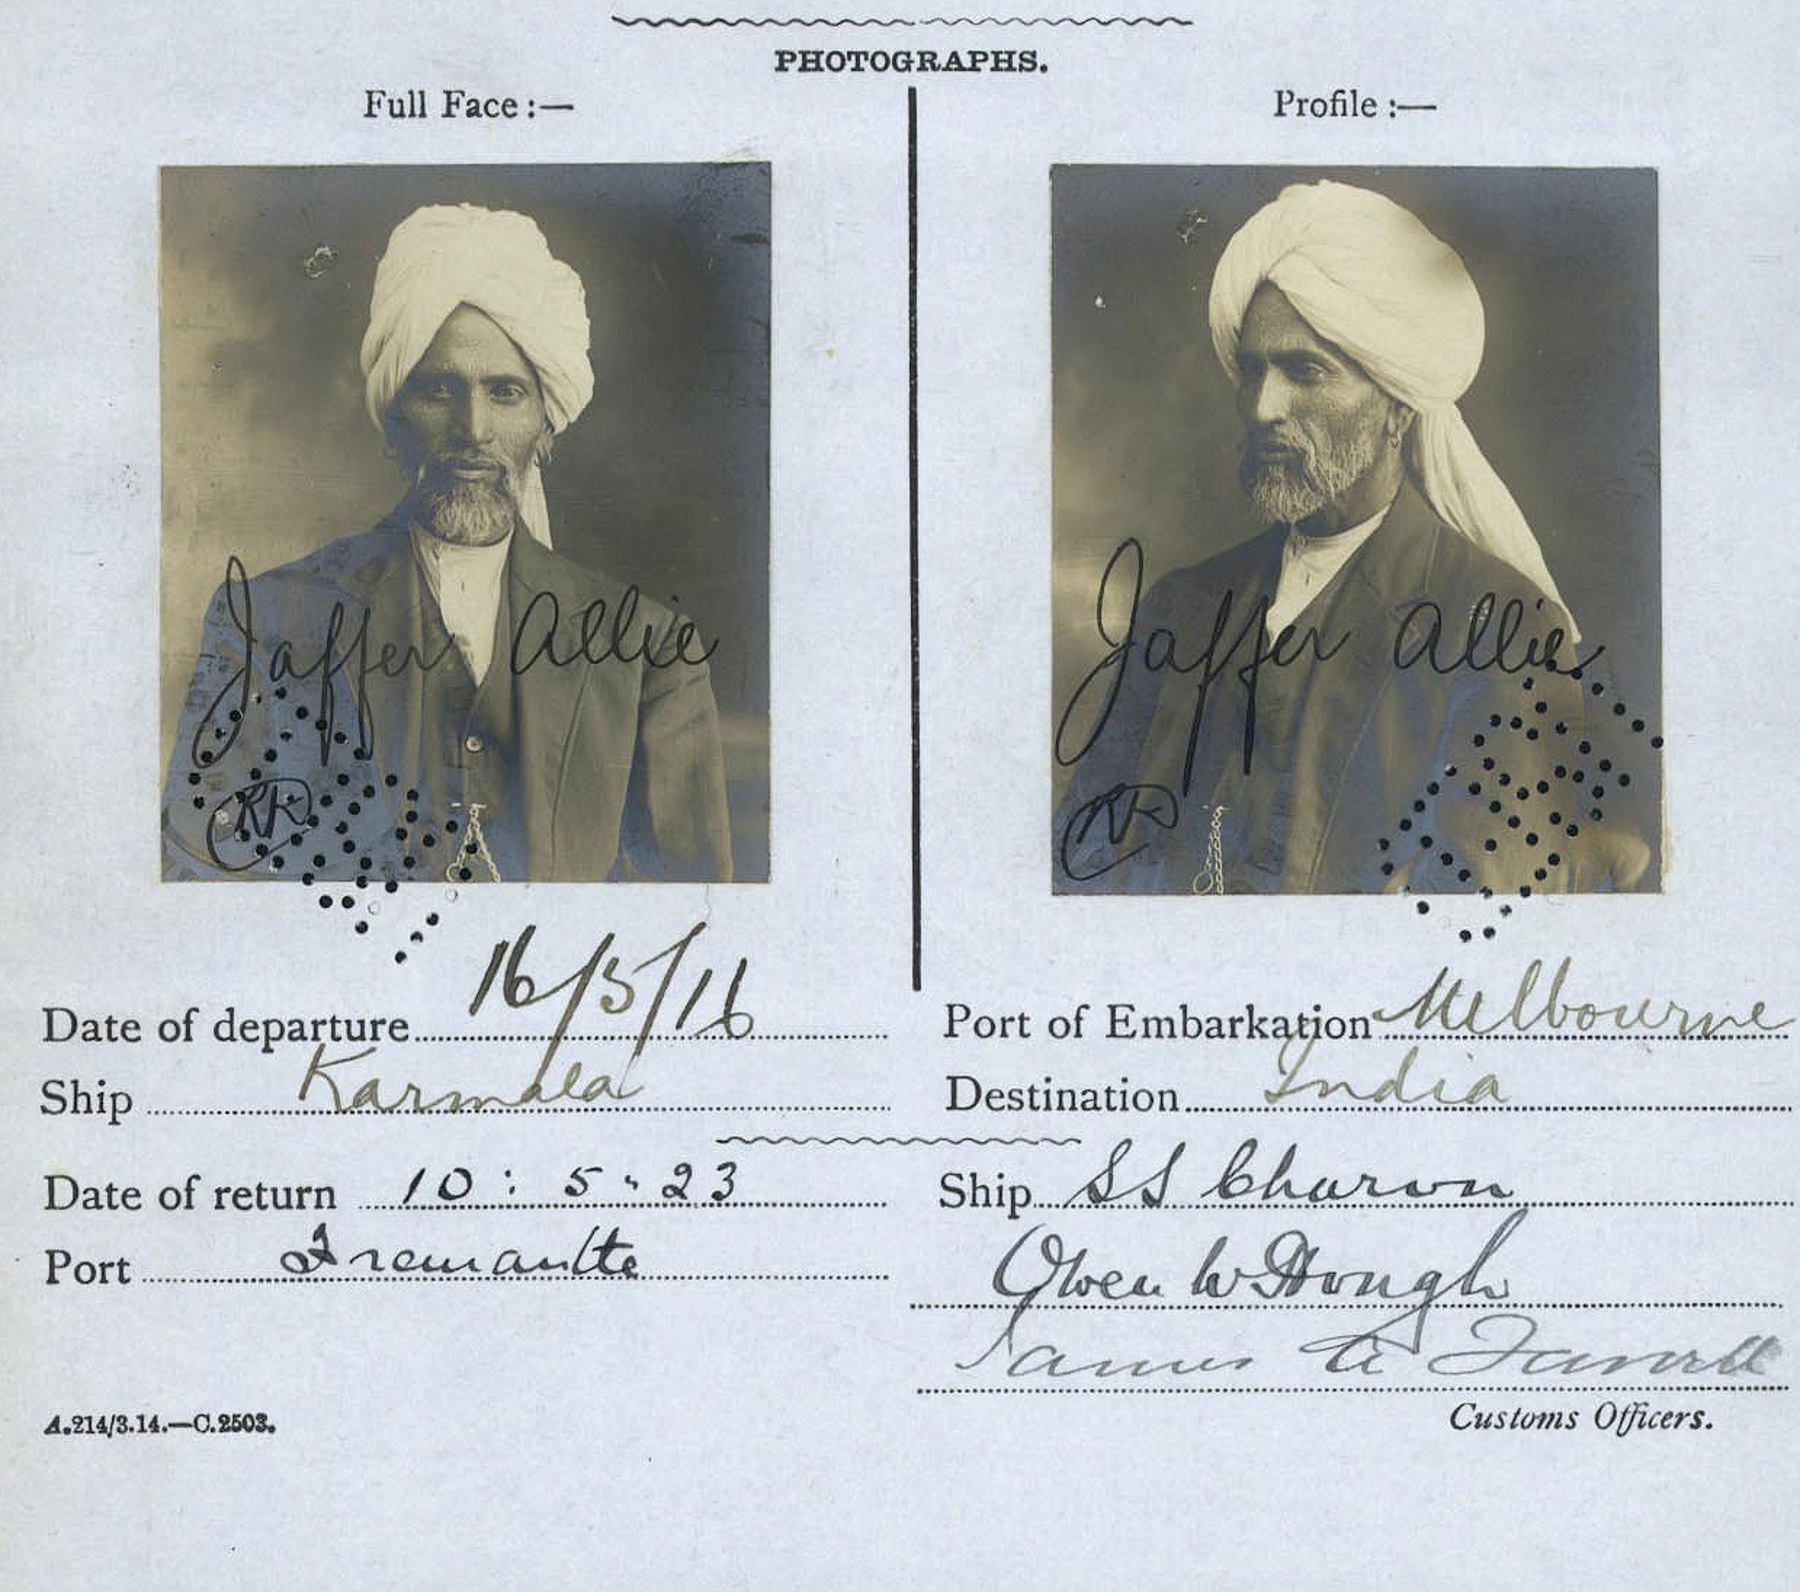 PHOTOGRAPHS.
Full Face :—
Profile :—
Jaffer Allie
Jaffer Allie
Date of departure 16/5/16
Port of Embarkation Melbourne
Ship Karmala
Destination India
Date of return 10 : 5 . 23
Ship SS Charon
Port Fremantle
Owen W Hough
James
Customs Officers.
A.214/3.14.—C.2503.